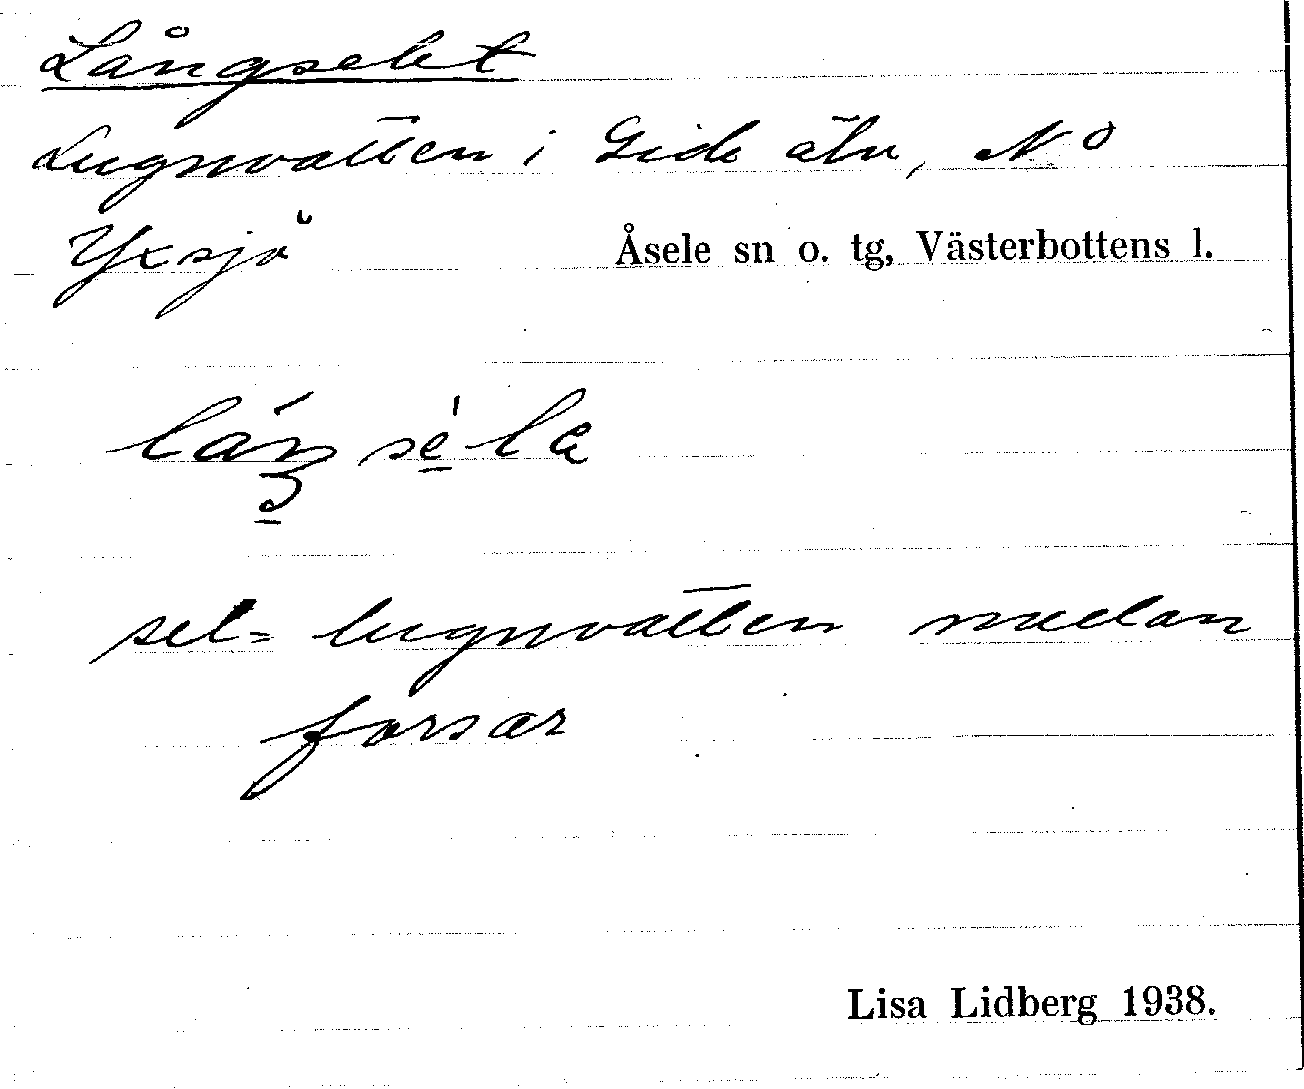 Långselet
Lugnvatten i Gide älv, NO
Yxsjö Åsele sn o. tg, Västerbottens l.
sel = lugnvatten mellan
forsar
Lisa Lidberg 1938.